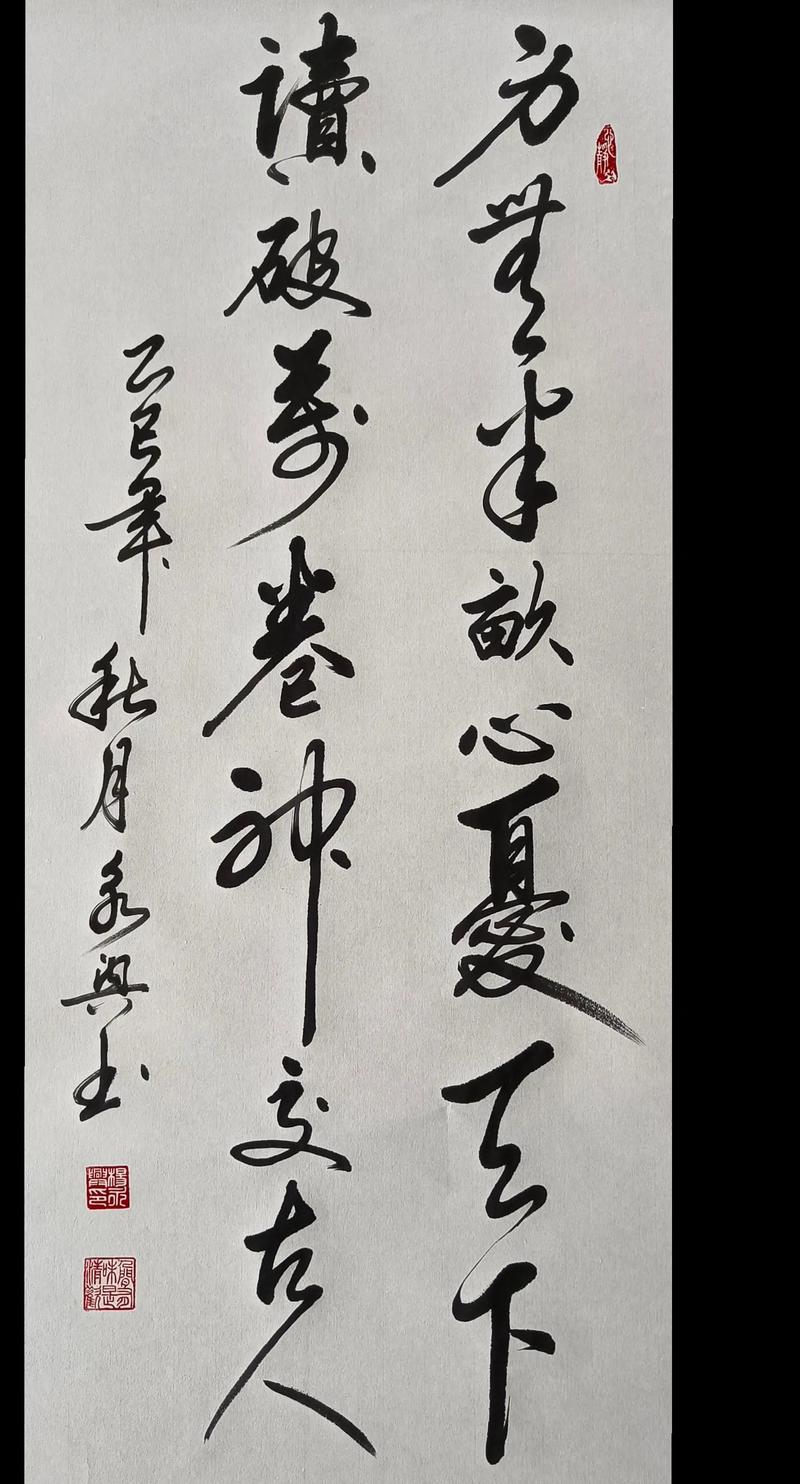 身無半畝心憂天下
讀破萬卷神交古人
乙巳年秋月永興書
楊永興印